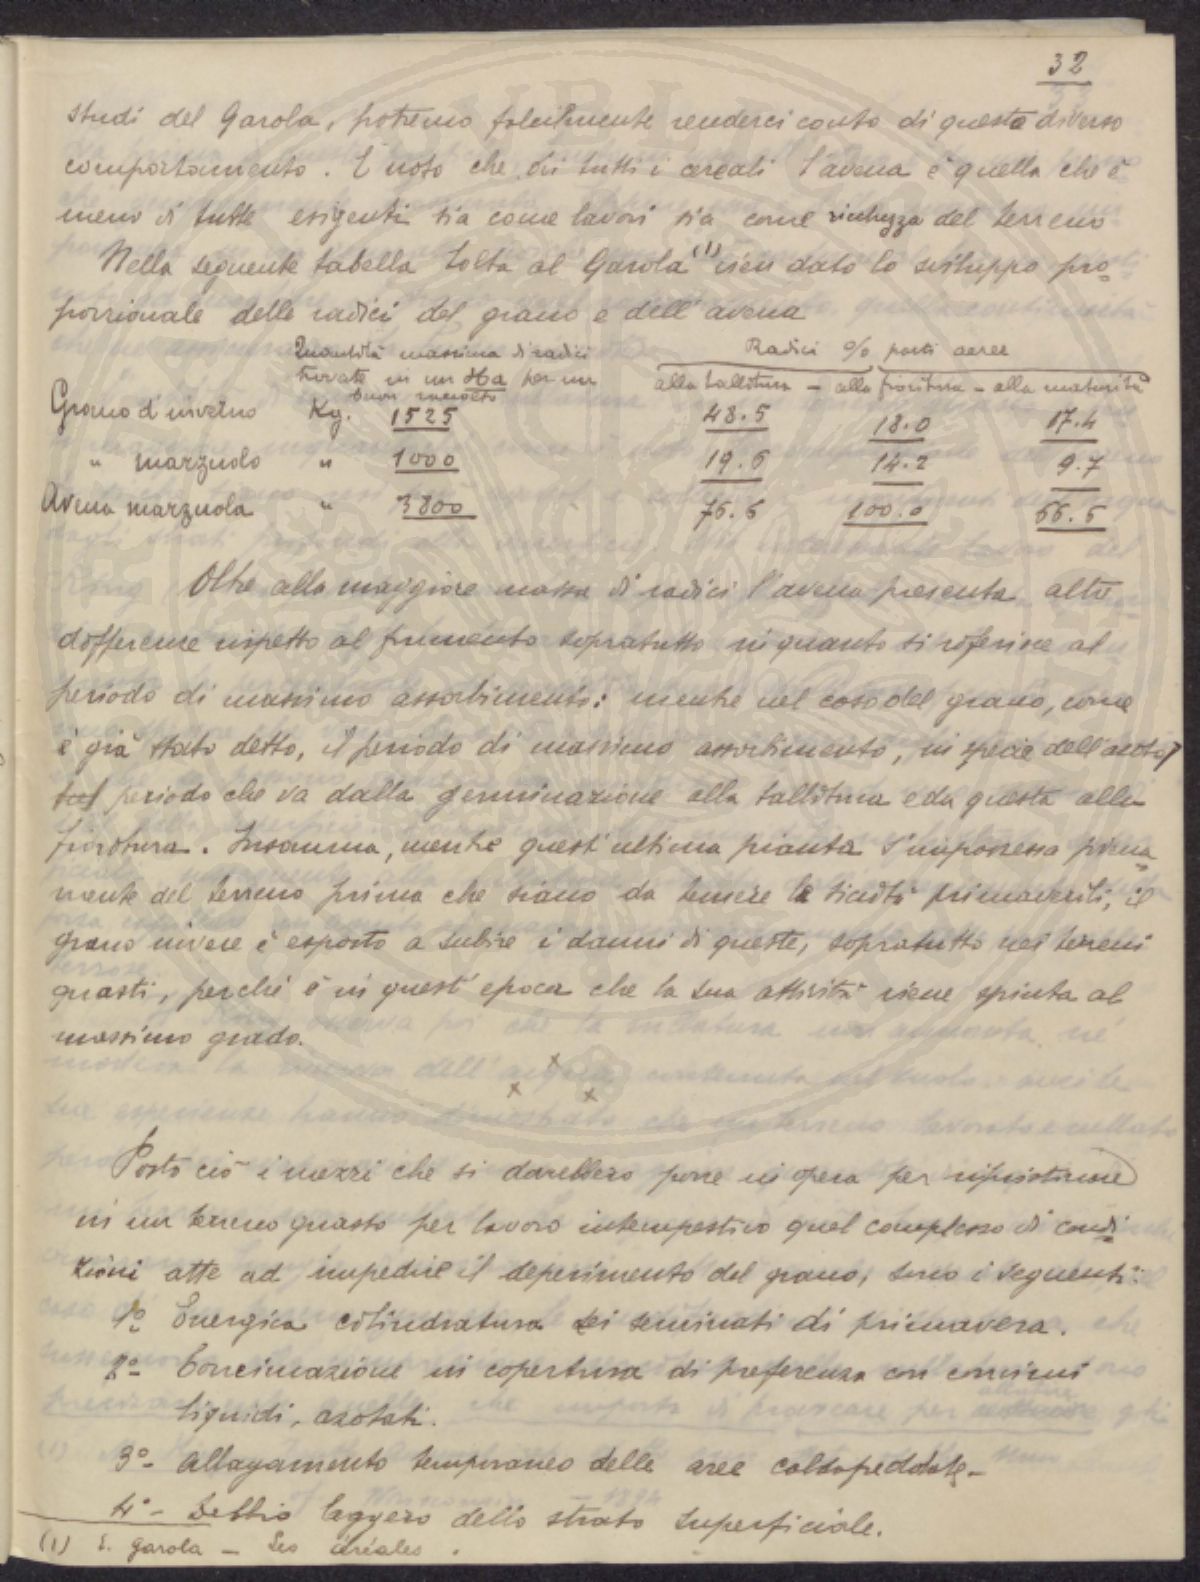 32
studi del Garola, potremo facilmente renderci conto di questo diverso
comportamento. È noto che di tutti i cereali l'avena è quella che è
meno di tutte esigenti sia come lavori sia come ricchezza del terreno
Nella seguente tabella tolta al Garola (1) vien dato lo sviluppo pro=
porzionale delle radici del grano e dell'avena
Quantità massima di radici
trovate in un Ha per un
buon raccolto
Radici % parti aeree
alla tallitura - alla fioritura - alla maturità
Grano d'inverno Kg. 1525 48.5 18.0 17.4
" marzuolo " 1000 19.6 14.2 9.7
Avena marzuola " 3800 76.6 100.0 66.5
Oltre alla maggiore massa di radici l'avena presenta altre
differenze rispetto al frumento sopratutto in quanto si riferisce al
periodo di massimo assorbimento: mentre nel caso del grano, come
è già stato detto, il periodo di massimo assorbimento, in specie dell'azoto,
periodo che va dalla germinazione alla tallitura e da questa alla
fioritura. Insomma, mentre quest'ultima pianta s'impossessa piena=
mente del terreno prima che siano da temere le siccità primaverili, il
grano invece è esposto a subire i danni di queste, sopratutto nei terreni
guasti, perché è in quest'epoca che la sua attività viene spinta al
massimo grado.
x
x x
Posto ciò i mezzi che si dovrebbero porre in opera per ripristinare
in un terreno guasto per lavoro intempestivo quel complesso di condi=
zioni atte ad impedire il deperimento del grano, sono i seguenti:
1º Energica cilindratura dei seminati di primavera.
2º- Concimazione in copertura di preferenza con concimi
liquidi, azotati.
3º- Allagamento temporaneo delle aree caldofreddate-
4º- Debbio leggero dello strato superficiale.
(1) E. Garola - Les céréales.